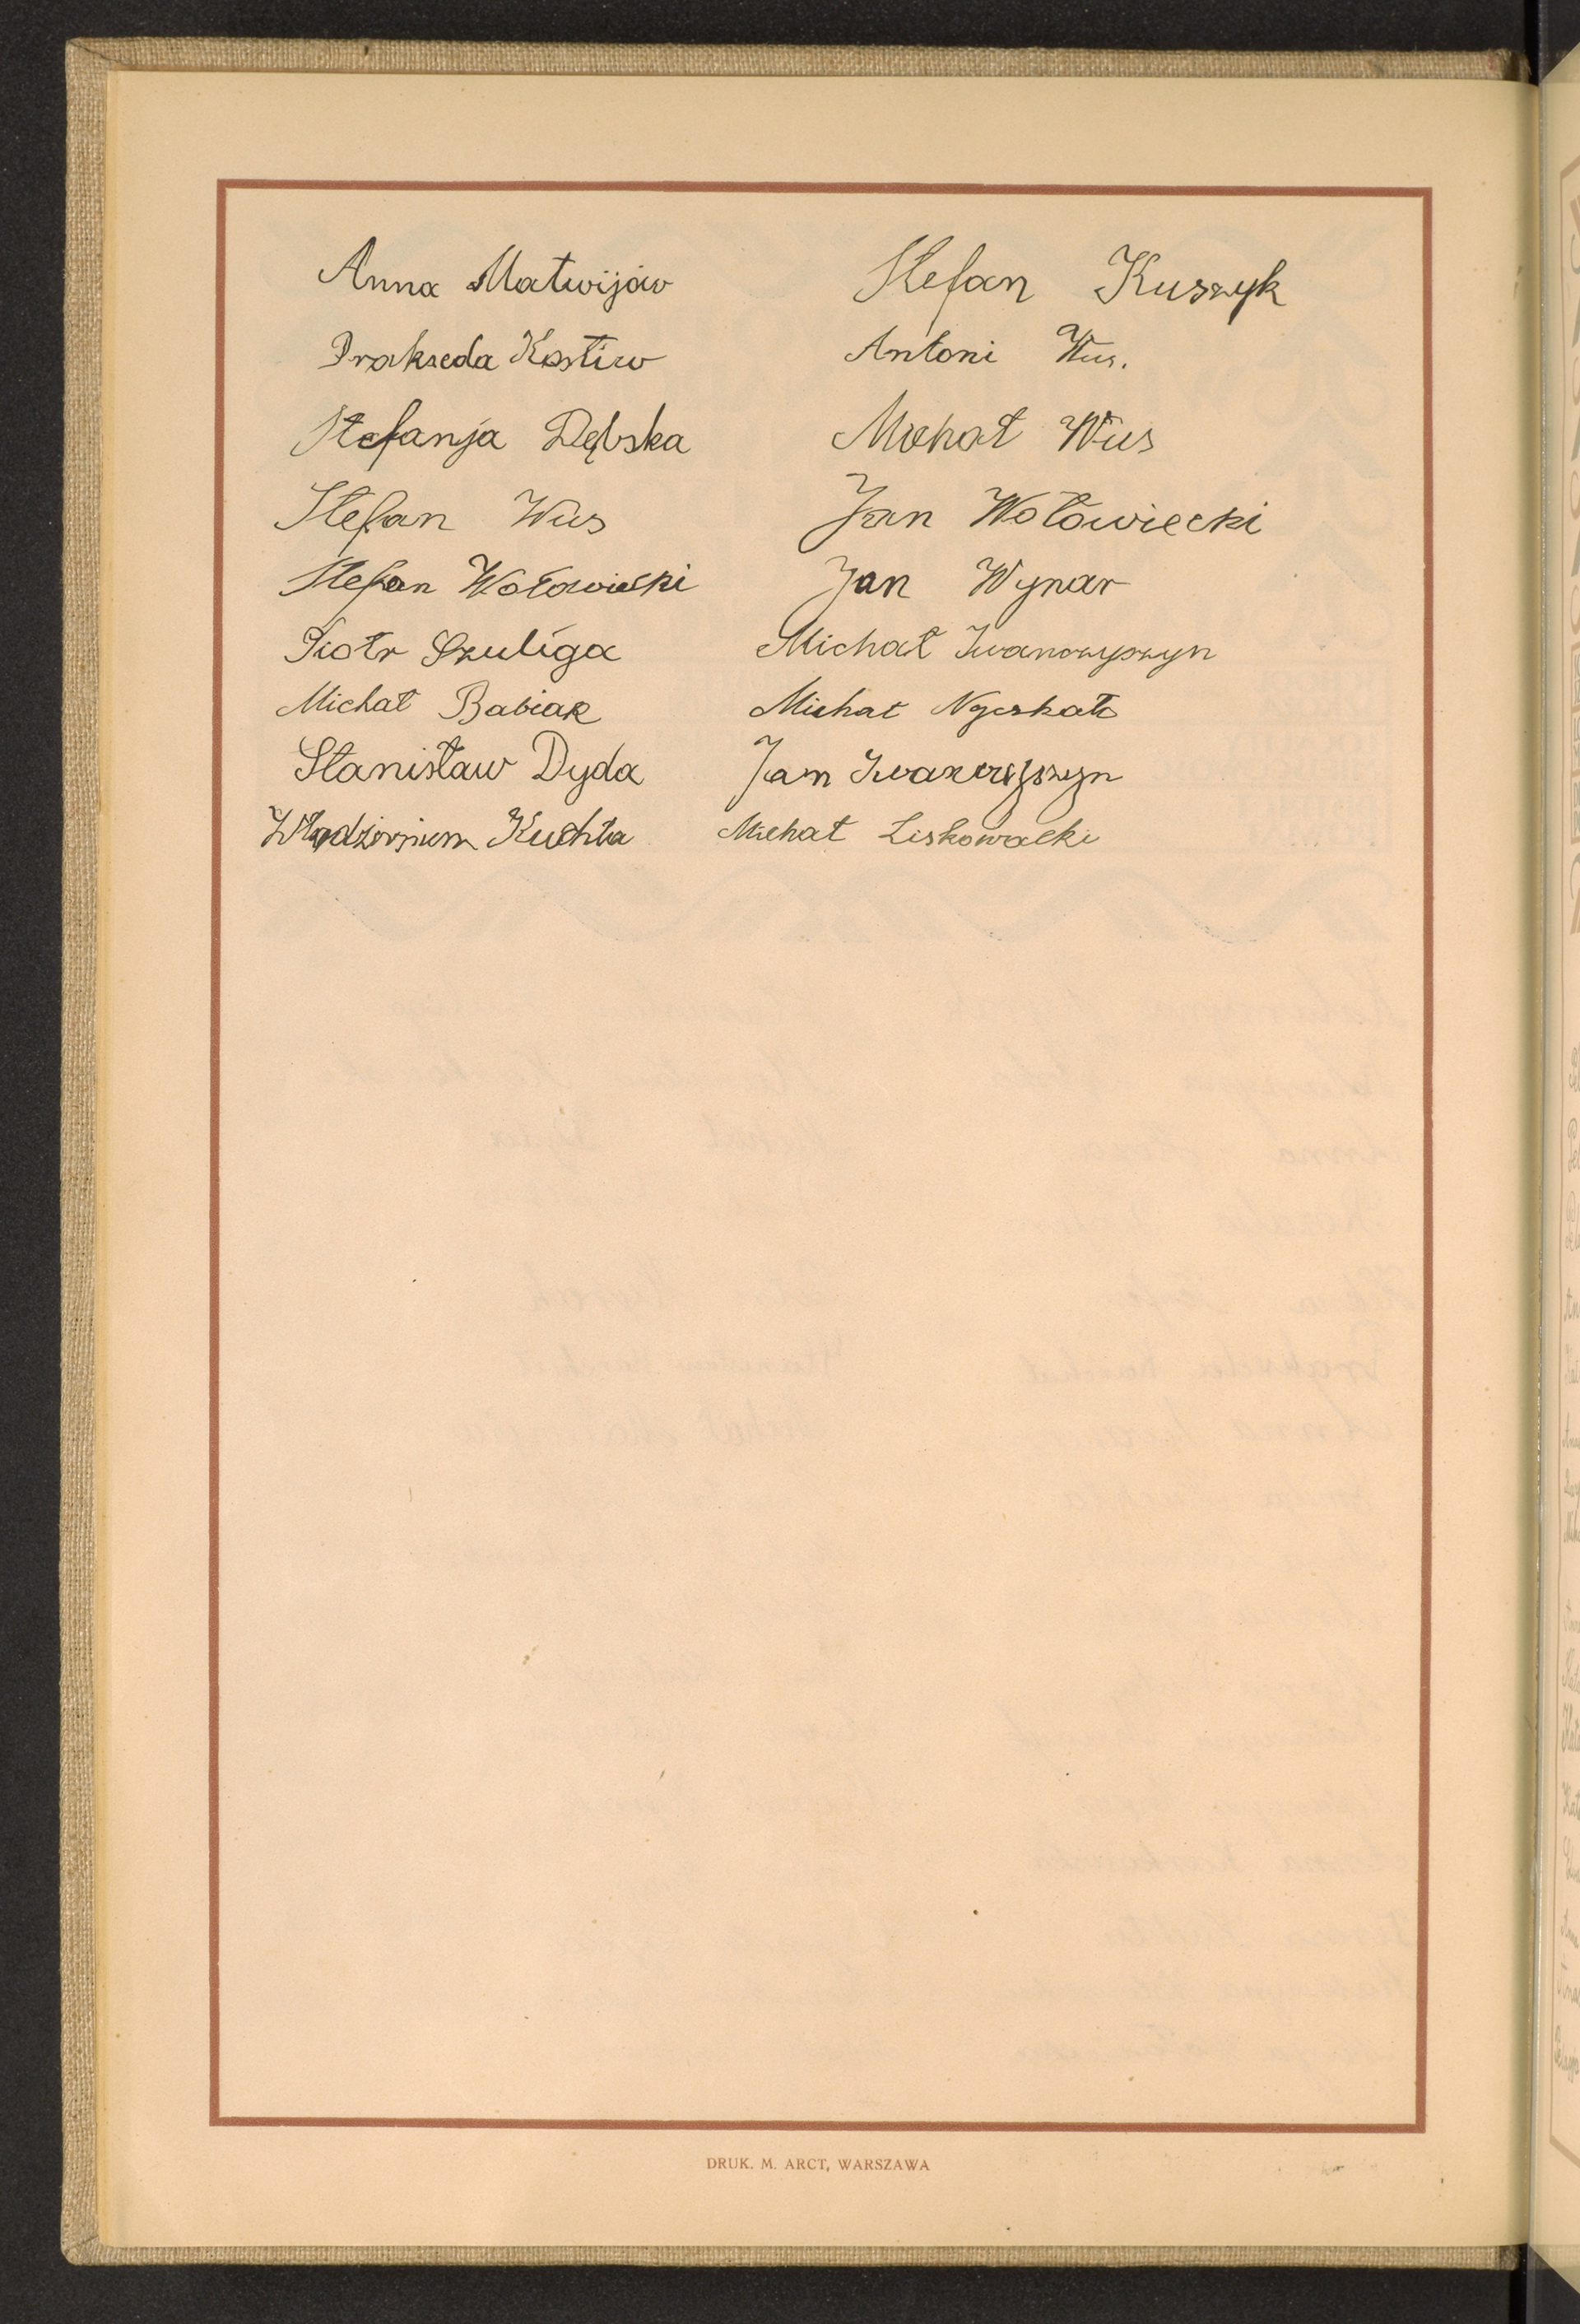 Anna Matwijów
Prakseda Kostiw
Stefanja Dębska
Stefan Wus
Stefan Wołowiecki
Piotr Szuliga
Michał Babiak
Stanisław Dyda
Włodzimierz Kuchta
Stefan Kuszyk
Antoni Wus.
Michał Wus
Jan Wołowiecki
Jan Wynar
Michał Iwanczyszyn
Michał
Jan Iwanczyszyn
Michał Liskowacki
DRUK. M. ARCT, WARSZAWA